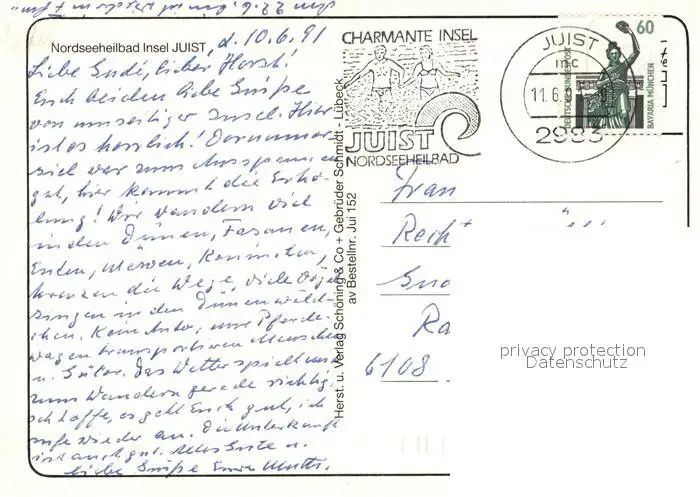 Nordseeheilbad Insel JUIST, d. 10.6.91
Liebe Gudi, lieber Horst!
Euch beiden liebe Grüße
von unseriger Insel. Hier
ist es herrlich!
sich war zum Ausspannen
gut, hier kommt die Erho-
lung! Wir wandern viel
in den Dünen, Fasanen,
Enten, Möwen, Kaninchen,
kreuzen die Wege, viele Vögel
singen in den Dünenwäld-
chen. Kein Auto, nur Pferde-
wagen transportieren Menschen
u. Güter. Das Wetter spielt
zum Wandern gerade richtig.
Ich hoffe, es geht Euch gut, ich
rufe wieder an. Die Unterkunft
ist auch gut. Alles Gute u.
liebe Grüße Eure Mutti.
Herst. u. Verlag Schöning & Co + Gebrüder Schmidt · Lübeck
av Bestellnr. Jui 152
CHARMANTE INSEL
JUIST
NORDSEEHEILBAD
JUIST
mc
11.6.
2983
60
DEUTSCHE BUNDESPOST
BAVARIA MÜNCHEN
Frau
Gud
Ra
6108
privacy protection
Datenschutz